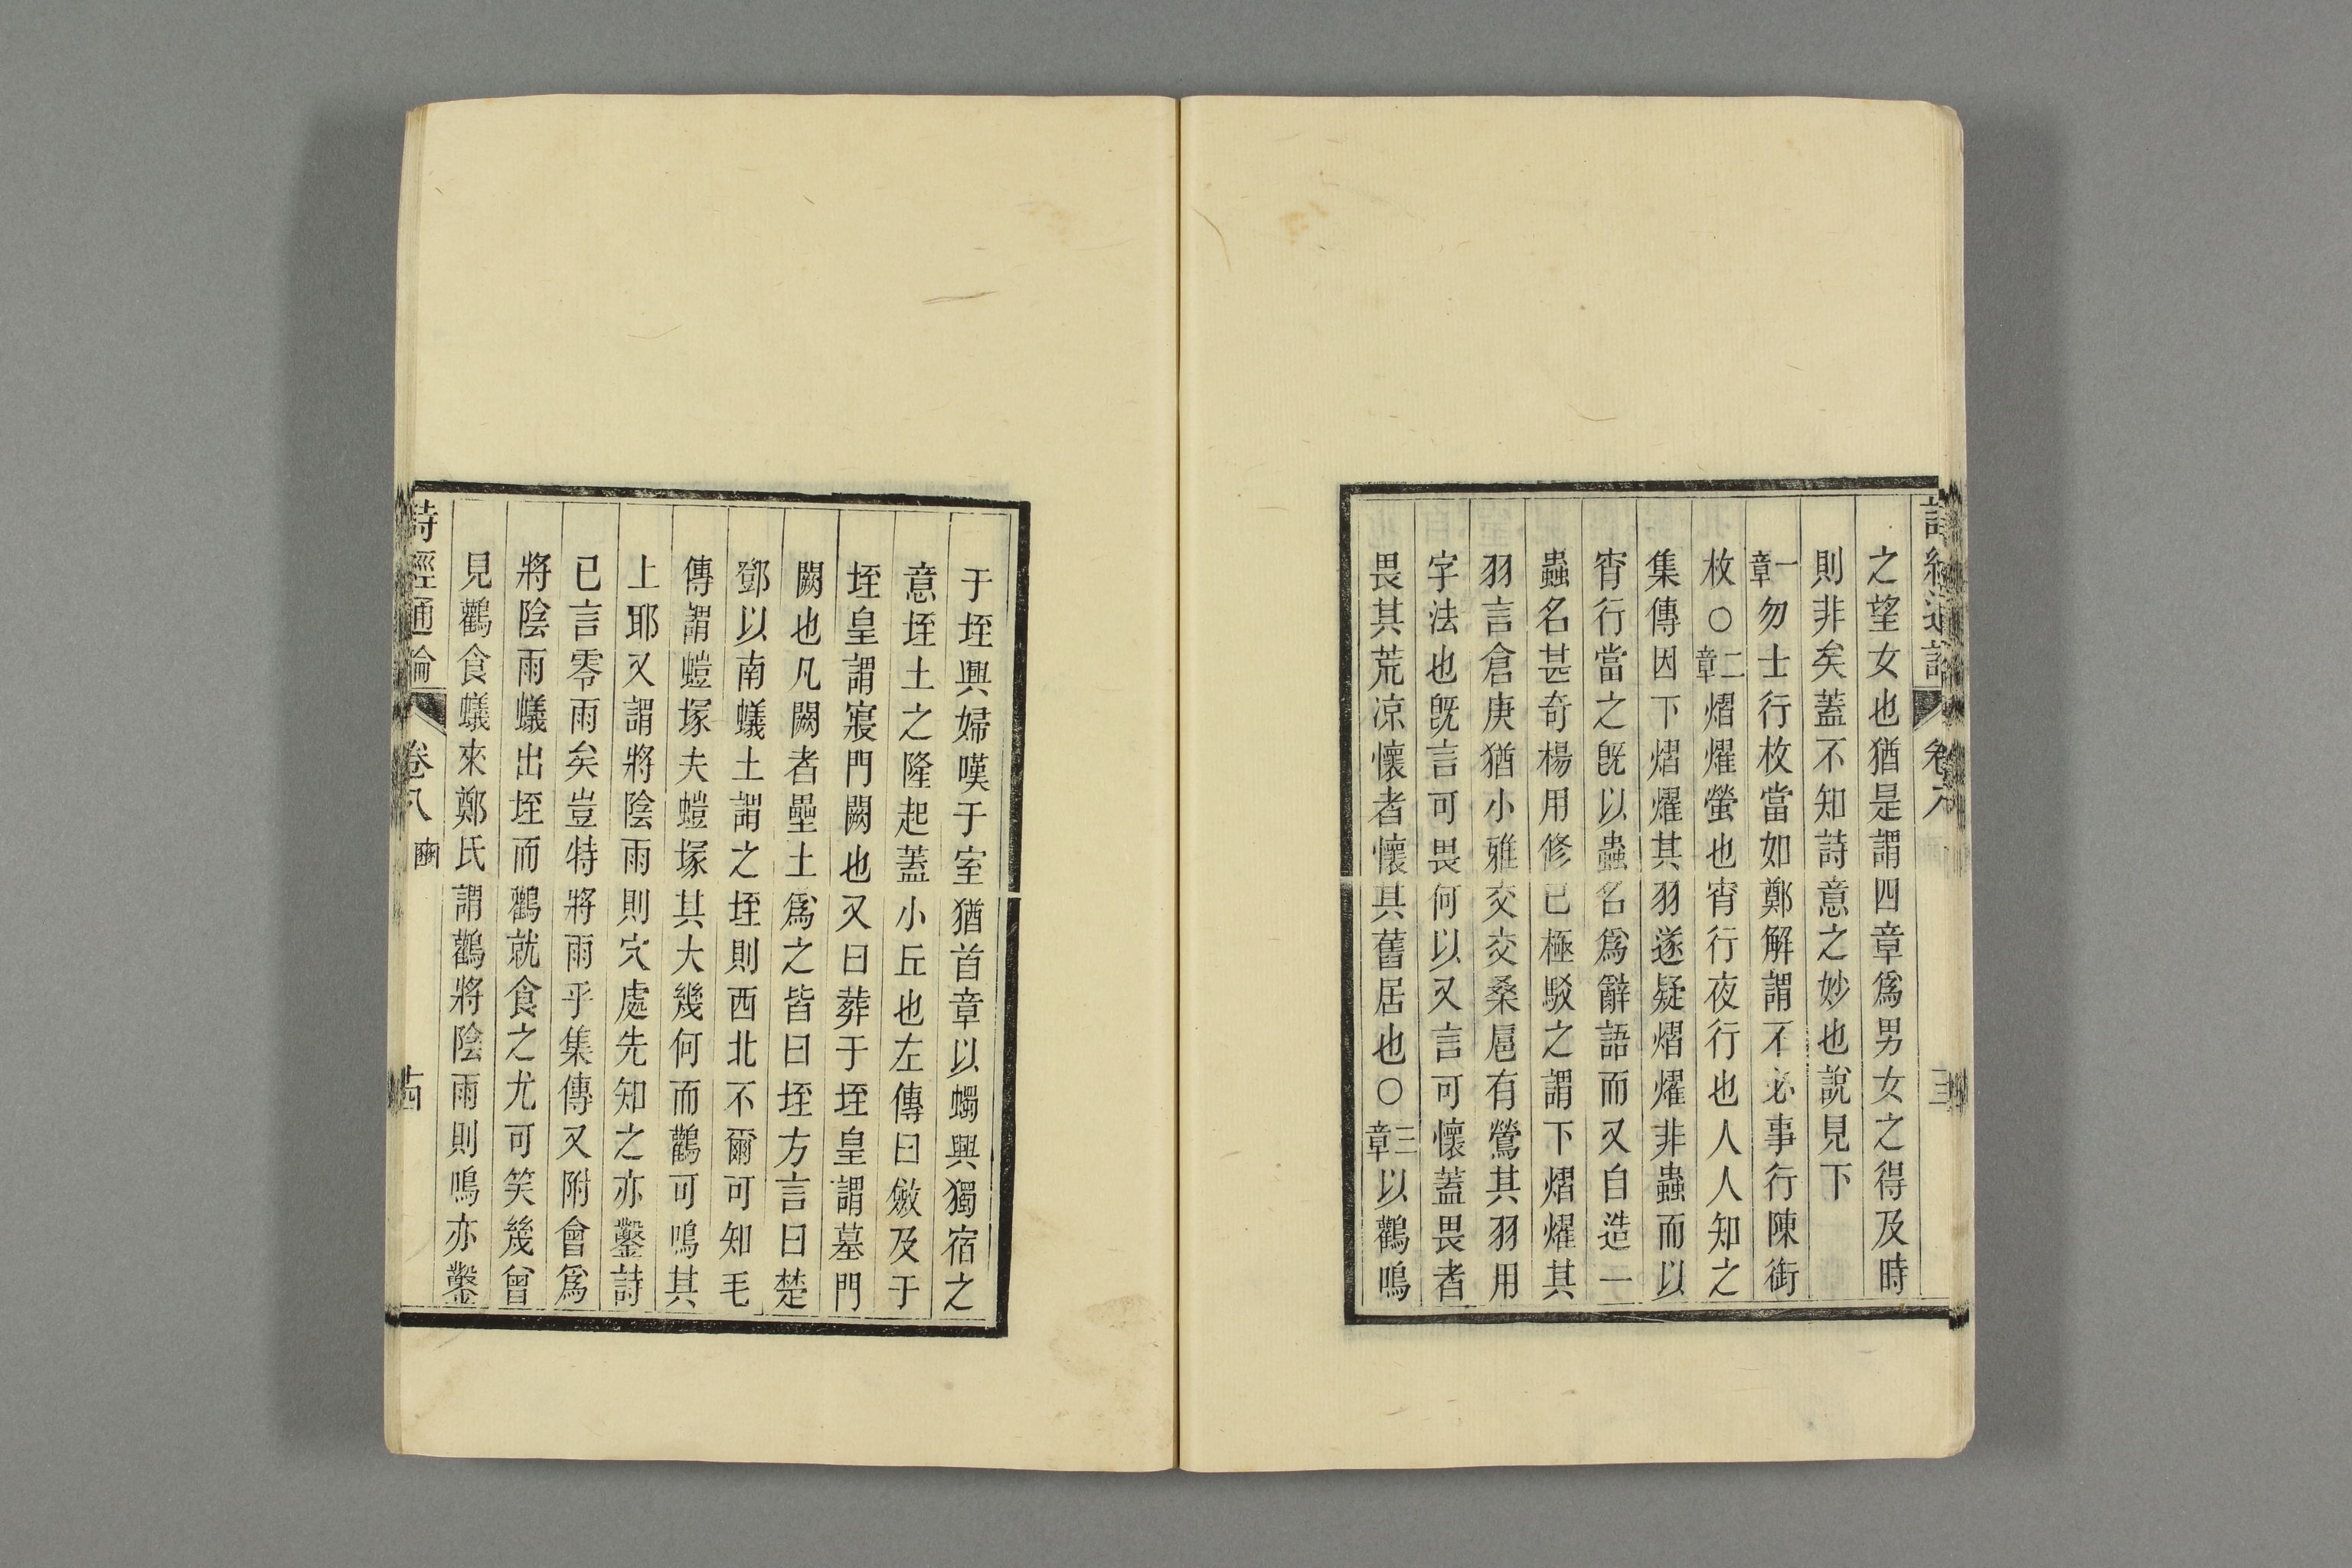 之望女也猶是謂四章爲男女之得及時
則非矣蓋不知詩意之妙也說見下
一章勿士行枚當如鄭解謂不必事行陳銜
枚○二章熠燿螢也宵行夜行也人人知之
集傳因下熠燿其羽遂疑熠燿非蟲而以
宵行當之旣以蟲名爲辭語而又自造一
蟲名甚奇楊用修已極駁之謂下熠燿其
羽言倉庚猶小雅交交桑扈有鶯其羽用
字法也旣言可畏何以又言可懷蓋畏者
畏其荒凉懷者懷其舊居也○三章以鸛鳴
于垤興婦嘆于室猶首章以蠋興獨宿之
意垤土之隆起蓋小丘也左傳曰斂及于
垤皇謂寢門闕也又曰葬于垤皇謂墓門
闕也凡闕者壘土爲之皆曰垤方言曰楚
鄧以南蟻土謂之垤則西北不爾可知毛
傳謂螘塚夫螘塚其大幾何而鸛可鳴其
上耶又謂將陰雨則穴處先知之亦鑿詩
已言零雨矣豈特將雨乎集傳又附會爲
將陰雨蟻出垤而鸛就食之尤可笑幾曾
見鸛食蟻來鄭氏謂鸛將陰雨則鳴亦鑿
詩經通論 卷八 豳 十四